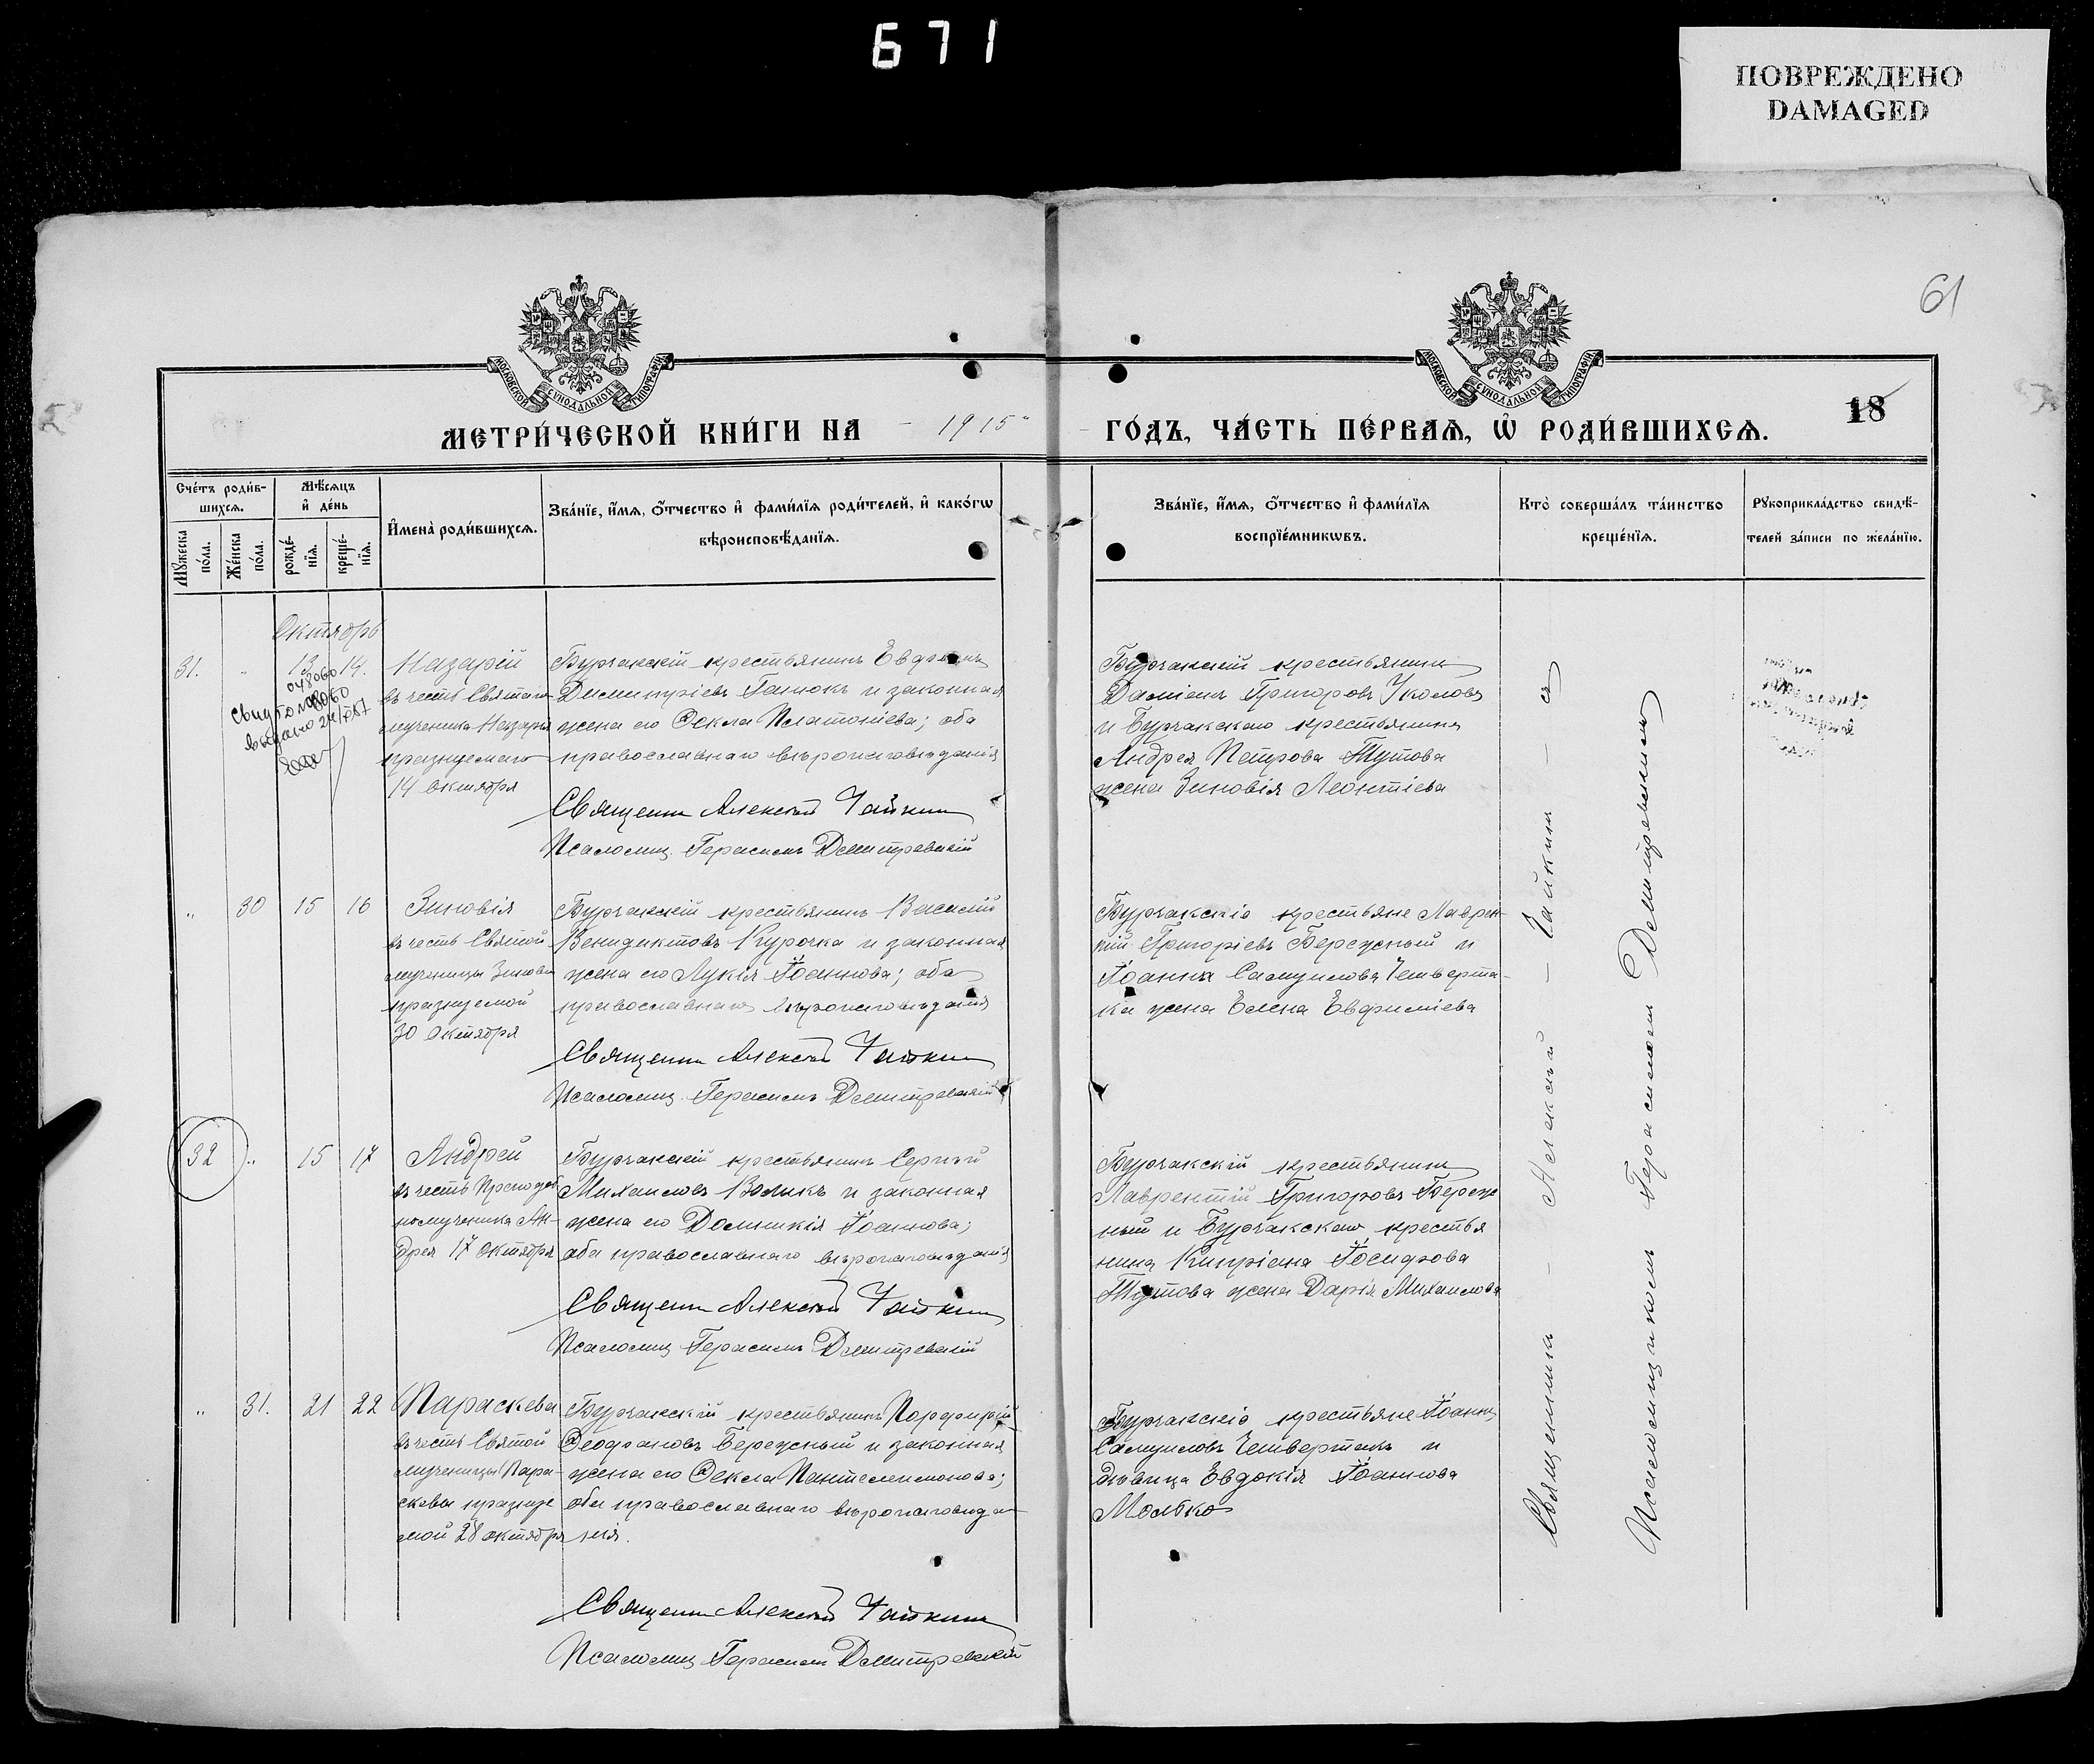 671
ПОВРЕЖДЕНО
DAMAGED
61
МОСКОВСКОЙ СѴНОДАЛЬНОЙ ТИПОГРАФІИ
МОСКОВСКОЙ СѴНОДАЛЬНОЙ ТИПОГРАФІИ
МЕТРИ́ЧЕСКОЙ КНИ́ГИ НА 1915 ГО́ДЪ, ЧА́СТЬ ПЕ́РВАѦ, Ѡ҆ РОДИ́ВШИХСѦ.
18
Сче́тъ роди́в-
шихсѧ.
Мѣ́сѧцъ
и҆ де́нь
Мꙋ́жеска
по́ла.
Же́нска
по́ла.
рожде́-
нїѧ.
креще́-
нїѧ.
И҆мена̀ роди́вшихсѧ.
Зва́нїе, и҆́мѧ, ѻ҆́тчество и҆ фами́лїѧ роди́телей, и҆ како́гѡ
вѣроисповѣ́данїѧ.
Зва́нїе, и҆́мѧ, ѻ҆́тчество и҆ фами́лїѧ
воспрїе́мникѡвъ.
Кто̀ соверша́лъ та́инство
креще́нїѧ.
Рꙋкоприкла́дство свидѣ́-
телей за́писи по жела́нїю.
Октябрь
31. " 13 14.
Назарій
въ честь Святаго
мученика Назарія
празднуемаго
14 октября
Бурчакскій крестьянинъ Евдокимъ
Димитріевъ Ганюкъ и законная
жена его Ѳекла Платоніева; оба
православнаго вѣроисповѣданія
Священникъ Алексѣй Чайкин
Псаломщ. Герасимъ Демитревскій
Бурчакскій крестьянинъ
Даміанъ Григоровъ Уколовъ
и Бурчакскаго крестьянина
Андрея Петрова Тутова
жена Зиновія Леонтіева
" 30 15 16
Зиновія
въ честь Святой
мученицы Зиновіи
празднуемой
30 октября
Бурчакскій крестьянинъ Василій
Венидиктовъ Курочка и законная
жена его Лукія Іоаннова; оба
православнаго вѣроисповѣданія
Священникъ Алексѣй Чайкин
Псаломщ. Герасимъ Демитревскій
Бурчакскіе крестьяне Лаврен-
тій Григоріевъ Бережный и
Іоанна Самуилова Четверта-
ка жена Елена Евфиміева
32 " 15 17
Андрей
въ честь Преподоб
номученика Ан-
дрея 17 октября
Бурчакскій крестьянинъ Сергѣй
Михаиловъ Волыкъ и законная
жена его Домникія Іоаннова;
оба православнаго вѣроисповѣданія
Священникъ Алексѣй Чайкин
Псаломщ Герасимъ Демитревскій
Бурчакскій крестьянинъ
Лаврентій Григоровъ Береж
ный и Бурчакскаго крестья
нина Кипріана Іосифова
Тутова жена Дарія Михаилова
" 31. 21 22
Параскева
въ честь Святой
мученицы Пара-
скевы праздue
мой 28 октября
Бурчакскій крестьянинъ Порфирій
Ѳеофановъ Бережный и законная
жена его Ѳекла Пантелеимонова;
оба православнаго вѣроисповѣда-
нія.
Священникъ Алексѣй Чайкин
Псаломщ Герасимъ Демитревскій
Бурчакскіе крестьяне Іоаннъ
Самуиловъ Четвертакъ и
дѣвица Евдокія Іоаннова
Молбко
Священникъ - Алексѣй - Чайкинъ - съ
Псаломщикомъ Герасимомъ Демитревскимъ